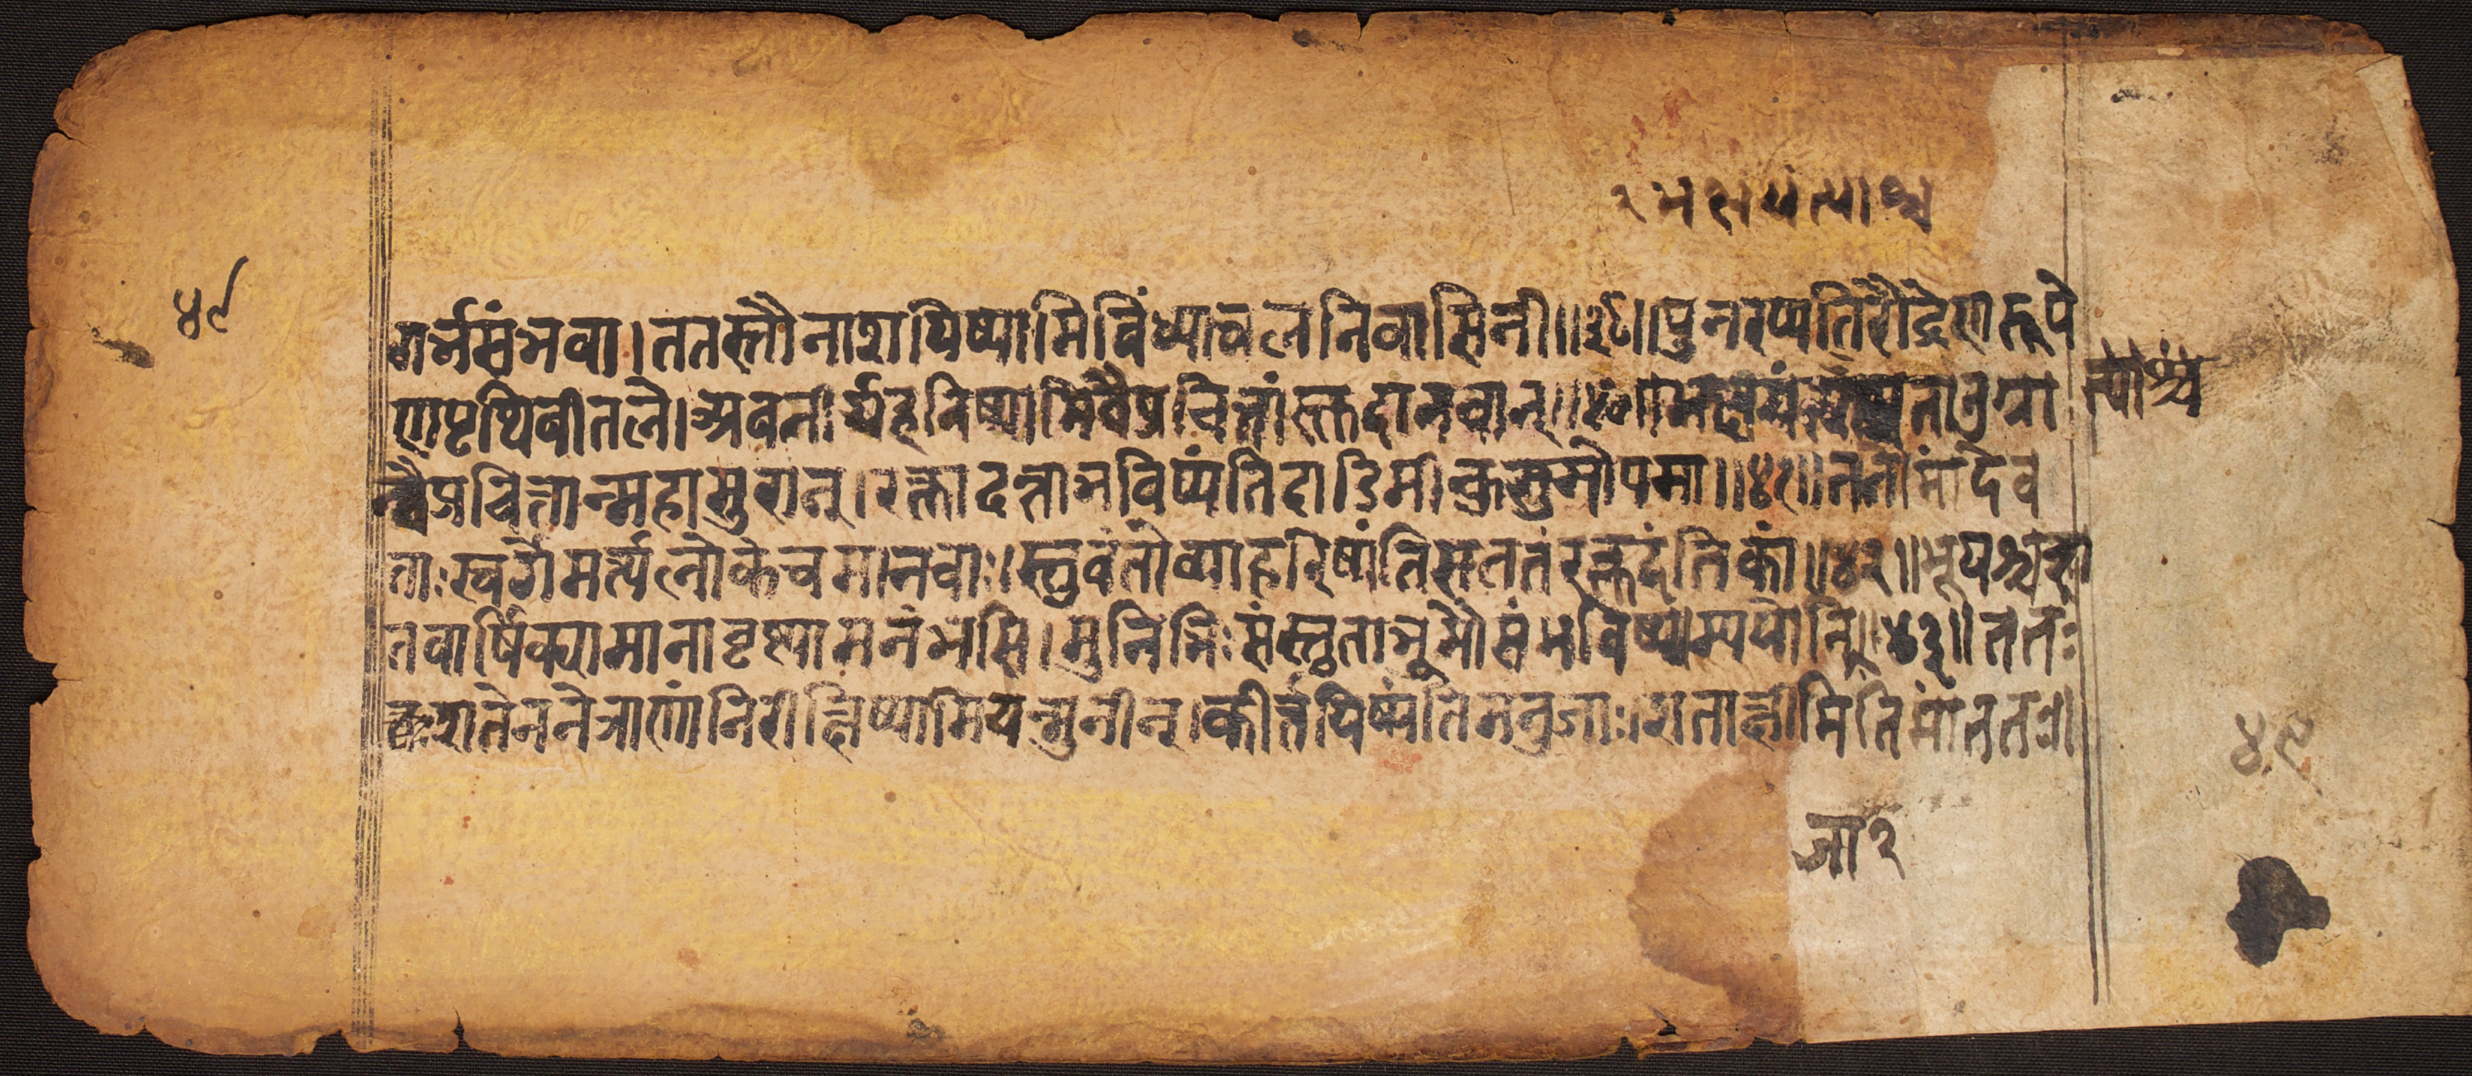 २ भक्षयंत्याश्च
४९
गर्भसंभवा। ततस्तौनाशयिष्यामिविंध्याचलनिवासिनी॥३९॥पुनरप्यतिरौद्रेणरूपे
णपृथिवीतले। अवतीर्यहनिष्यामिवैप्रचित्तांस्तदानवान्॥४०॥ तानुग्रा
त्याश्च
न्वैप्रचित्तान्महासुरान्। रक्तादन्ताभविष्यंतिदाडिमीकुसुमोपमा॥४१॥ततोमांदेव
ताःस्वर्गेमर्त्यलोकेचमानवाः।स्तुवंतोव्याहरिष्यंतिसततंरक्तदंतिकां॥४२॥भूयश्चश
तवार्षिक्यामानावृष्ट्यामनंभसि। मुनिभिःसंस्तुताभूमौसंभविष्याम्ययोनि॥४३॥ततः
शतेननेत्राणांनिरीक्षिष्यामियन्मुनीन्।कीर्त्तयिष्यंतिमनुजाः।शताक्षीमितिमांततः॥
४९
जा२